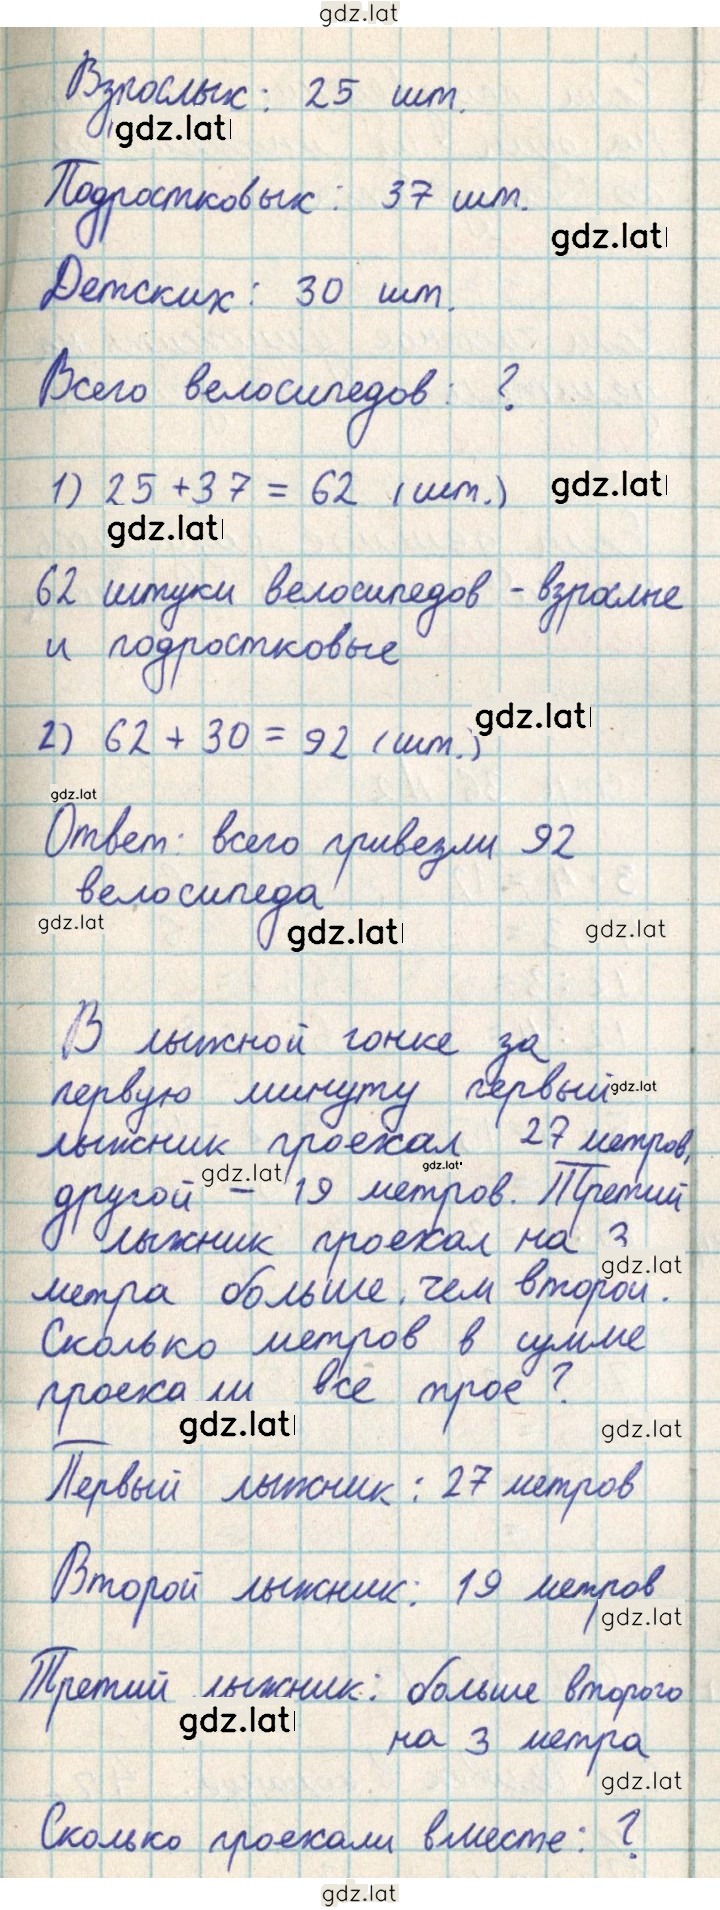 gdz.lat
Взрослых: 25 шт.
gdz.lat
Подростковых: 37 шт.
gdz.lat
Детских: 30 шт.
Всего велосипедов: ?
1) 25 + 37 = 62 (шт.) gdz.lat
gdz.lat
62 штуки велосипедов - взрослые
и подростковые
2) 62 + 30 = 92 (шт.) gdz.lat
gdz.lat
Ответ: всего привезли 92
велосипеда
gdz.lat gdz.lat gdz.lat
В лыжной гонке за
первую минуту первый gdz.lat
лыжник проехал 27 метров,
gdz.lat gdz.lat
другой – 19 метров. Третий
лыжник проехал на 3
gdz.lat
метра больше, чем второй.
Сколько метров в сумме
проехали все трое?
gdz.lat gdz.lat
Первый лыжник: 27 метров
Второй лыжник: 19 метров
gdz.lat
Третий лыжник: больше второго
gdz.lat
на 3 метра
gdz.lat
Сколько проехали вместе: ?
gdz.lat